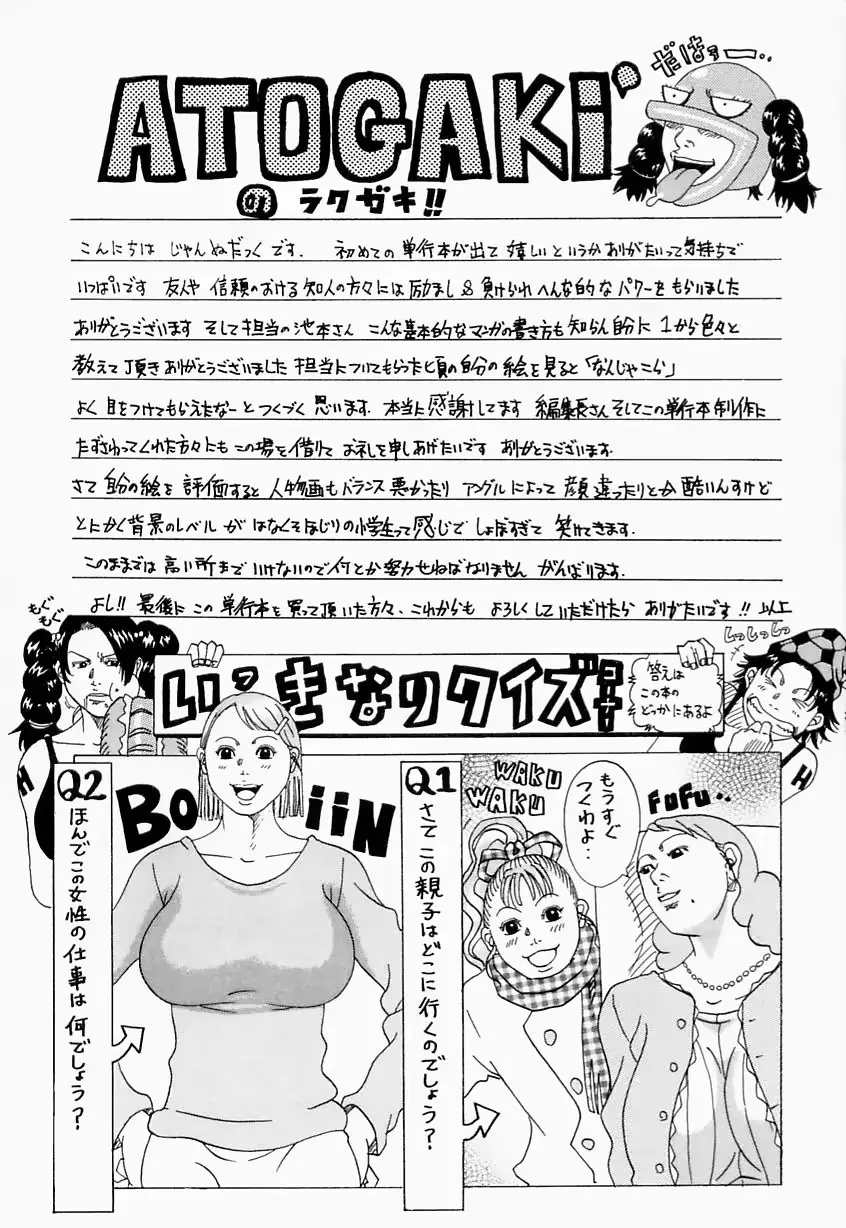 ATOGAKi
の ラクガキ!!
だはァー..
こんにちは じゃんぬだっく です. 初めての 単行本が出て 嬉しいというか ありがたいって気持ちで
いっぱいです 友人や 信頼のおける 知人の方々には 励まし & 負けられへんな的な パワーを もらいました
ありがとうございます そして担当の池本さん こんな基本的なマンガの書き方も 知らん自分に 1から色々と
教えて頂き ありがとうございました 担当についてもらった頃の自分の絵を見ると「なんじゃこら」
よく 目をつけてもらえたなーと つくづく 思います. 本当に感謝してます 編集長さん そしてこの単行本制作に
たずさわってくれた方々にも この場を借りて お礼を申しあげたいです ありがとうございます.
さて 自分の絵を 評価すると 人物画もバランス悪かったり アングルによって 顔違ったりとか酷いんすけど
とにかく背景のレベル が はなくそほじりの小学生って感じで しょぼすぎて 笑けてきます.
このままでは 高い所まで いけないので何とか努力せねばなりません がんばります.
よし!! 最後に この 単行本を 買って頂いた方々、これからも よろしくしていただけたら ありがたいです!! 以上
もぐもぐ
しっしっしっ
いっきなりクイズコーナー
答えは
この本の
どっかにあるよ
Q1
さて この親子はどこに行くのでしょう?
WAKU
WAKU
もうすぐ
つくわよ..
FuFu..
Q2
ほんでこの女性の仕事は 何でしょう?
BOiiN
H
H